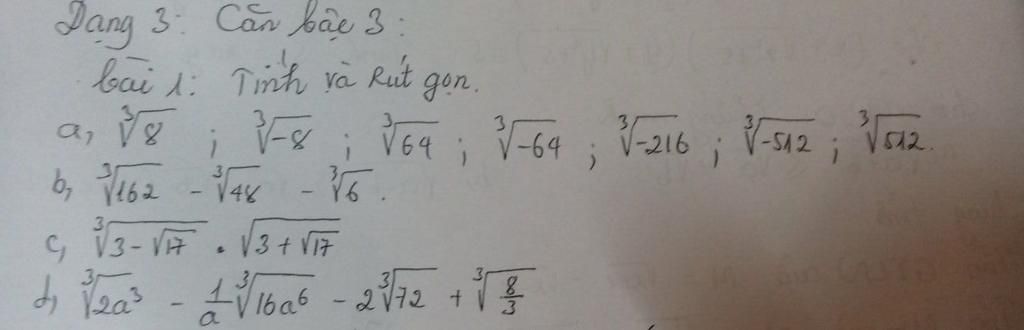 Dạng 3: Căn bậc 3:
bài 1: Tính và Rút gọn.
a, ∛8 ; ∛-8 ; ∛64 ; ∛-64 ; ∛-216 ; ∛-512 ; ∛512.
b, ∛162 - ∛48 - ∛6.
c, ∛(3 - √17) . √(3 + √17)
d, ∛(2a³) - 1/a ∛(16a⁶) - 2∛72 + ∛(8/3)